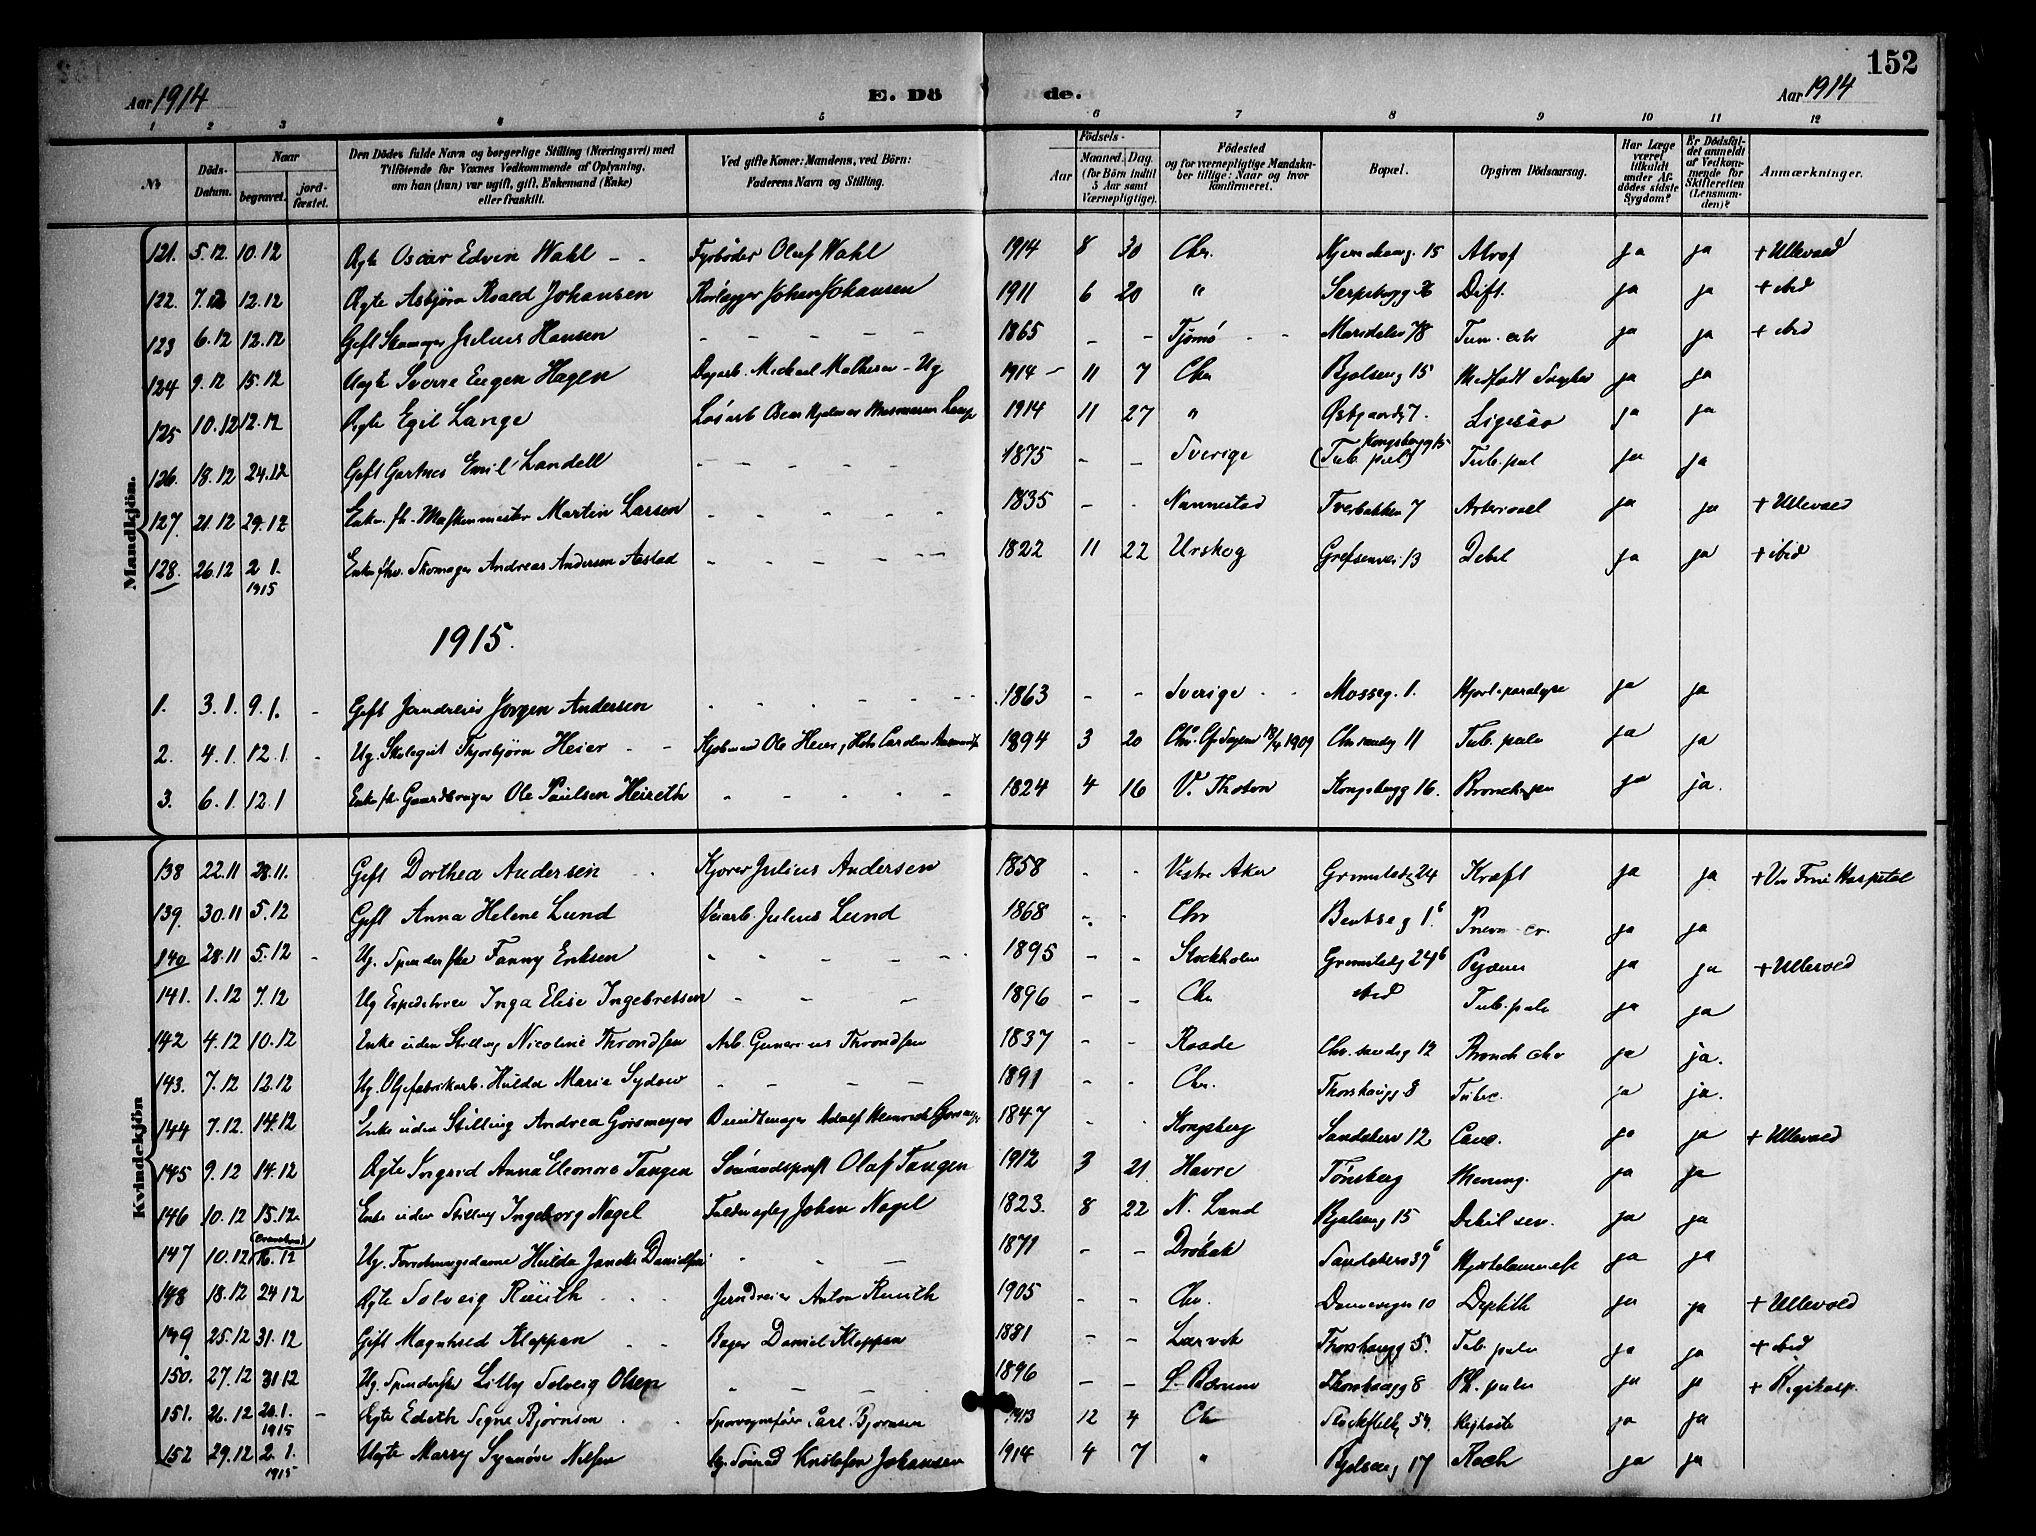 152
Aar 1914 E. Dö de. Aar 1914
1 2 3 4 5 6 7 8 9 10 11 12
No Döds-Datum. Naar begravet. jord-fæstet. Den Dödes fulde Navn og borgerlige Stilling (Næringsvei) med Tilföiende for Voxnes Vedkommende af Oplysning, om han (hun) var ugift, gift, Enkemand (Enke) eller fraskilt. Ved gifte Koner: Mandens, ved Börn: Faderens Navn og Stilling. Aar Födsels- Maaned. Dag. (for Börn indtil 5 Aar samt Værnepligtige). Födested og for værnepligtige Mandska-ber tillige: Naar og hvor konfirmeret. Bopæl. Opgiven Dödsaarsag. Har Læge været tilkaldt under Af-dödes sidste Sygdom? Er Dödsfal-det anmeldt af Vedkom-mende for Skifteretten (Lensman-den)? Anmærkninger.
Mandkjön.
121. 5.12. 10.12 Ægte Oscar Edvin Wahl - - Fyrbøder Olaf Wahl 1914 8 30 Chr. 15 Atrof ja ja + Ullevaal
122. 7.12 12.12 Ægte Asbjørn Roald Johansen Rørlægger Johan Johansen 1911 6 20 " Sarpsborgg Dift. ja ja + ibid
123 6.12 12.12 Gift Skomager Julius Hansen - - - - 1865 - - Tjømø Maridalsv 78 ja ja + ibid
124 9.12 15.12 Uægte Sverre Eugen Hagen Dagarb. Michael Mathisen - Ug 1914 11 7 Chr Bjølseng 15 Medfødt Svaghed ja ja
125 10.12 12.12 Ægte Egil Lange Løsarb Oscar Hjalmar Lange 1914 11 27 " Østgaardg 7. ja ja
126. 18.12 24.12 Gift Gartner Emil Landell - - - - 1875 - - Sverige Kongsbergg 15 (Tub. pul) Tub. pul ja ja
127. 21.12 29.12 Enkm. fh. Maskinmester Martin Larsen - - - - 1835 - - Nannestad Tverbakken 7 ja ja + Ullevaal
128. 26.12 2.1. 1915 Enkm fhv. Skomager Andreas Andersen Aastad - - - - 1822 11 22 Urskog Grefsenvei 13 Debil ja ja + ibid
1915.
1. 3.1. 9.1. - Gift Jerndreier Jørgen Andersen - - - - 1863 - - Sverige Mosseg. 1. Hjerteparalyse ja ja
2. 4.1. 12.1 - Ug. Skolegut Thorbjørn Heier - - Kjøbmand Ole Heier, 1894 3 20 Chr. 18/4 1909 11 Tub. pulm ja ja
3. 6.1. 12.1 Enkm fh. Gaardbruger Ole Paulsen Heireth - - - - 1824 4 16 V. Thoten Kongsbergg 16. ja ja.
Kvindekjön
138 22.11 28.11. Gift Dorthea Andersen Kjører Julius Andersen 1858 - - Vestre Aker Grimstadg 24 Kræft ja ja + Vor Frue Hospital
139. 30.11 5.12 Gift Anna Helene Lund Veiarb. Julius Lund 1868 - - Chr Bentseg 1 6. Pneum. cr. ja ja
140 28.11 5.12 - Ug. Spinderske Fanny Eriksen - - - - 1895 - - Stockholm Grimstadg 24 6 Pyæmi ja ja + Ullevold
141. 1.12 7.12 Ug Expeditrice Inga Elise Ingebretsen - - - 1896 - - Chr ibid Tub. pulm ja ja
142 4.12 10.12 Enke uden Stilling Nicoline Throndsen Arb. Gunerius Throndsen 1837 - - Raade Chr.sandsg 12 Bronch chr ja ja.
143. 7.12 12.12 Ug. Oljefabrikarb. Hulda Marie Sydow - - - - 1891 - - Chr. Thorshaugg 8 Tuberc. ja ja.
144 7.12. 14.12 Enke uden Stilling Andrea Gørsmeyer Buntmager Adolf Heinrich Gørsmeyer 1847 - - Kongsberg Sandakerv 12 Canc. ja ja + Ullevaal
145 9.12 14.12 Ægte Ingrid Anna Eleonora Tangen Olaf Tangen 1912 3 21 Havre Tønsberg Mening. ja ja
146 10.12 15.12 Enke uden Stilling Ingeborg Nagel Johan Nagel 1823. 8 22 N. Land Bjølseng 15 Debil sen. ja ja
147 10.12 16.12 Ug. Forretningsdame Hulda Danielsen - - - 1871 - - Drøbak Sandakerv 39 6 Hjertelammelse ja ja
148 18.12 24.12 Ægte Solveig Ruuth - - Jerndreier Anton Ruuth 1905 - - Chr. 10 Diphth ja ja + Ullevold
149 25.12 31.12 Gift Magnhild Kleppan - - Bager Daniel Kleppan 1881 - - Larvik Thorshaugg 5. Tub. pulm ja ja + ibid
150. 27.12 31.12 Ug. Spinderske Lilly Solveig Olsen - - - - 1896 - - Ø. Bærum Thorshaugg 8 Ph. pulm ja ja + Rigshosp.
151. 26.12 20.1. 1915 - Ægte Edith Signe Bjørnsen - - Sporvognsfører Carl Bjørnsen 1913 12 4 Chr ja ja
152 29.12 2.1. 1915 Uægte Marry Synnøve Nilsen Ug. Sømand Kristofer Johansen 1914 4 7 " Bjølseng 17 Rach ja ja